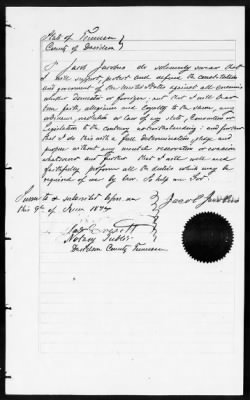 State of Tennessee
County of Davidson
I Jacob do solemnly swear that
I will support, protect and defend the constitution
and government of the United States against all enemies
whether domestic or foreign, and that I will bear
true faith, allegiance and loyalty to the same, any
ordinance, resolution or law of any state, Convention or
Legislation to the contrary notwithstanding; and further
that I do this with a full determination, pledge and
purpose without any mental reservation or evasion
whatsoever and further that I will well and
faithfully perform all the duties which may be
required of me by law. So help me God.
Sworn to & subscribed before me
this 9th of June
Jacob
Notary Public
Davidson County Tennessee